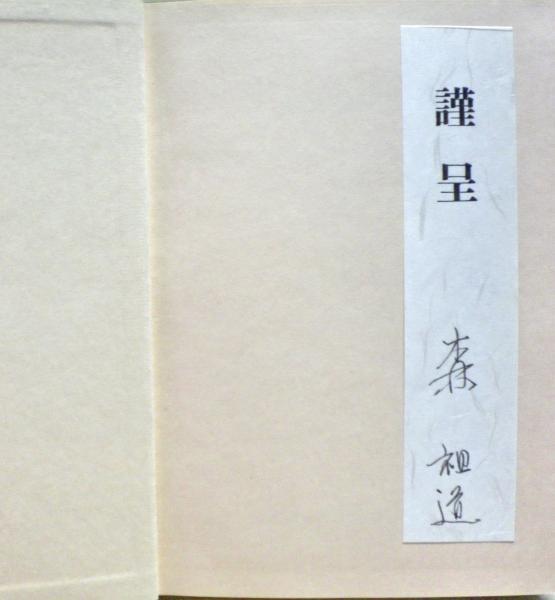 謹呈
森 祖道